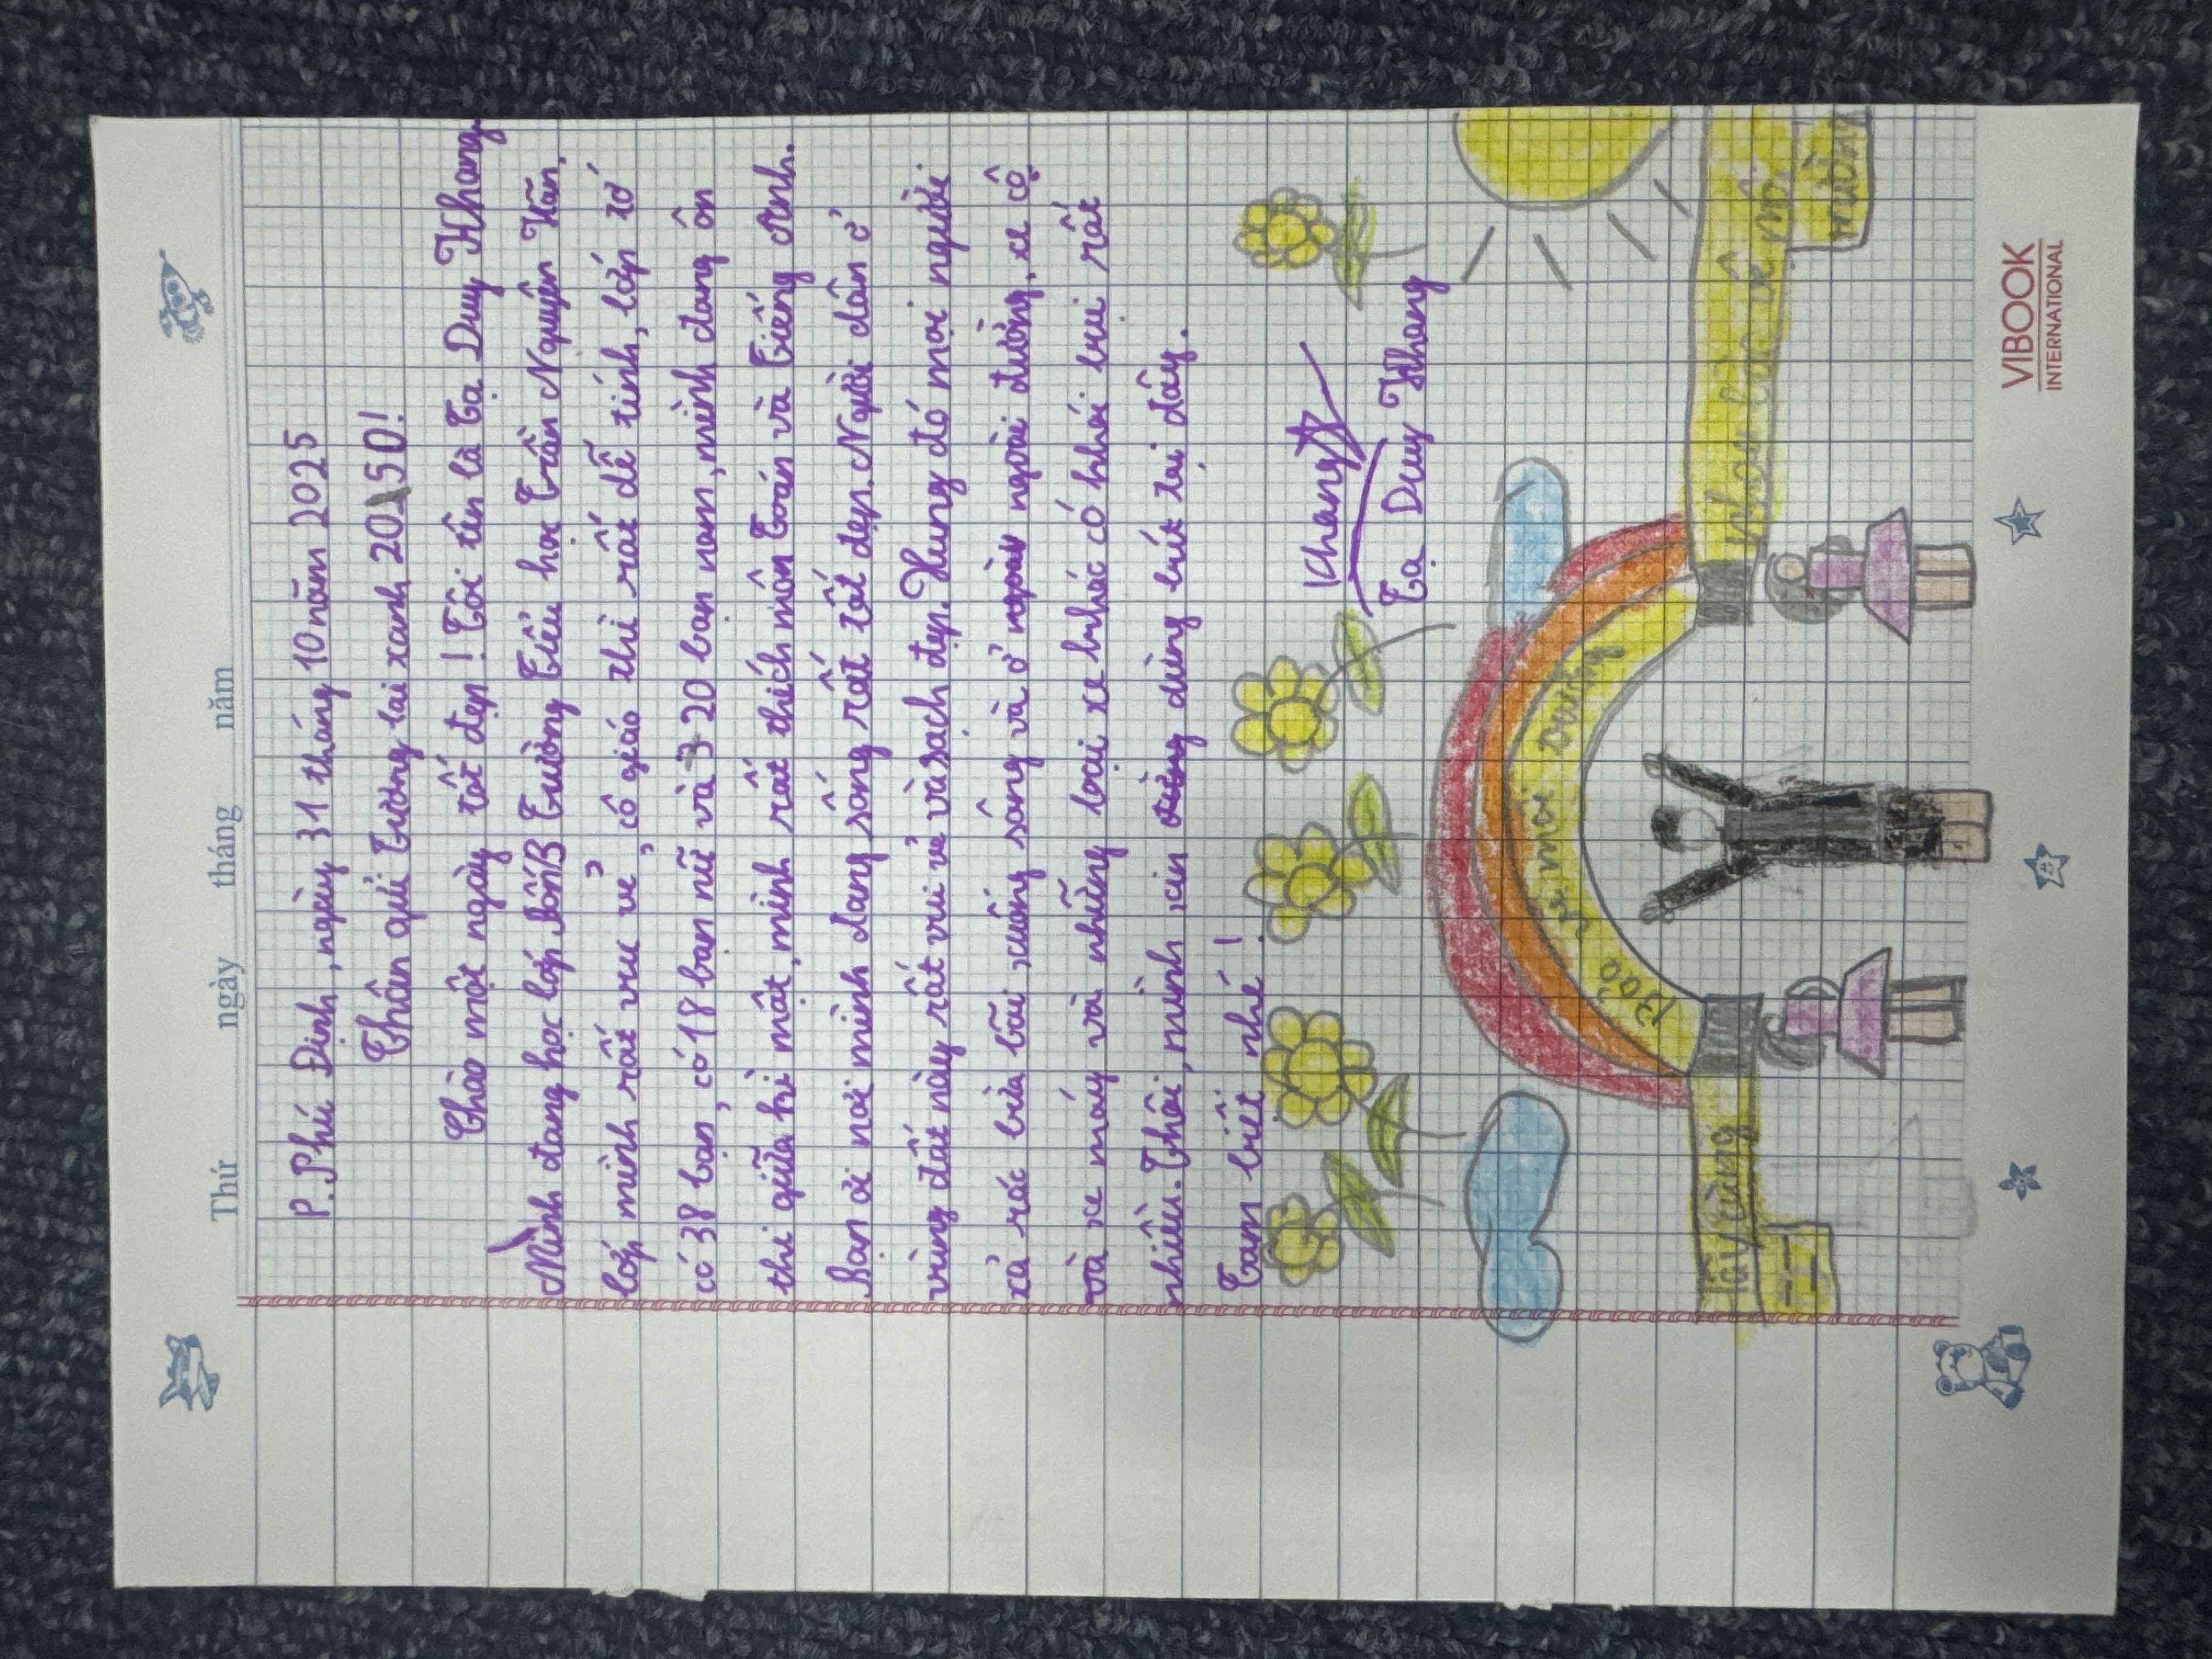 Thứ ngày tháng năm
P. Phú Định, ngày 31 tháng 10 năm 2025
Thân gửi Tương lai xanh 2050!
Chào một ngày tốt đẹp! Tôi tên là Tạ Duy Khang
Mình đang học lớp BốnB Trường Tiểu học Trần Nguyên Hãn,
lớp mình rất vui vẻ, cô giáo thì rất dễ tính, lớp số
có 38 bạn, có 18 bạn nữ và 20 bạn nam, mình đang ôn
thi giữa kì một, mình rất thích môn Toán và Tiếng Anh.
Bạn ơi nơi mình đang sống rất tốt đẹp. Người dân ở
vùng đất này rất vui vẻ và sạch đẹp. Nhưng đó mọi người
xả rác bừa bãi, xuống sông và ở ngoài đường, xe cộ
và xe máy và những loại xe khác có khói bụi rất
nhiều. Thôi, mình xin dừng bút tại đây.
Tạm biệt nhé!
Khang
Tạ Duy Khang
Bảo vệ môi trường
VIBOOK
INTERNATIONAL